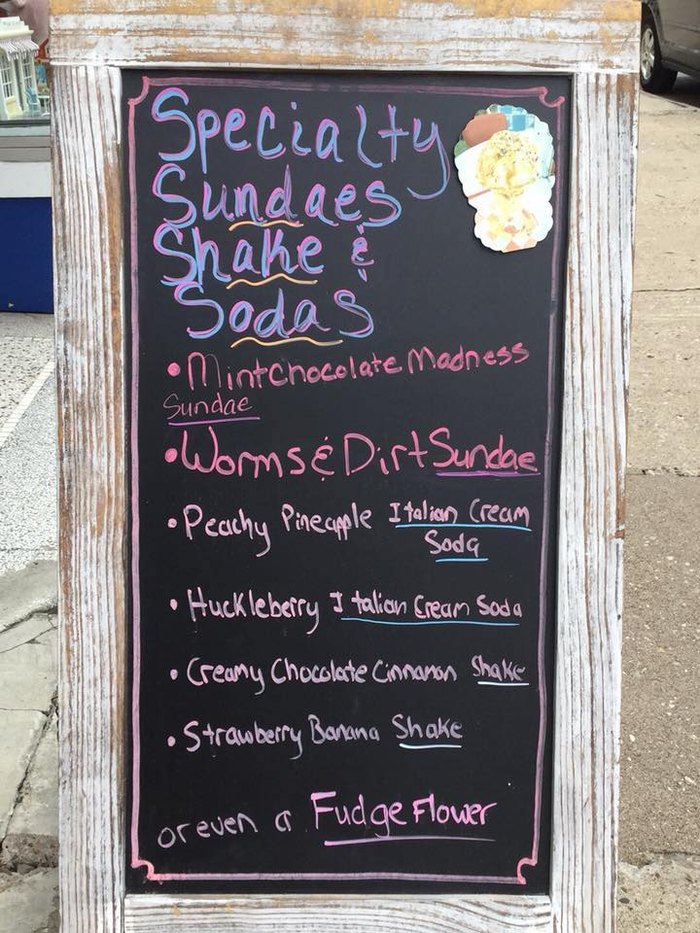 Specialty
Sundaes
Shake &
Sodas
• Mint Chocolate Madness
Sundae
• Worms & Dirt Sundae
• Peachy Pineapple Italian Cream
Soda
• Huckleberry Italian Cream Soda
• Creamy Chocolate Cinnamon Shake
• Strawberry Banana Shake
or even a Fudge Flower